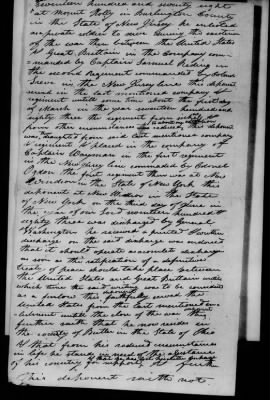 Seventeen hundred and seventy eight
at Mount Holly in Burlington County
in the State of New Jersey enlisted
as private soldier to serve during the existence
of the war then between the United States
& Great Brittain in the Company com-
manded by Captain Samuel
in the second Regiment commanded by Colonel
Sreve in the New Jersey line this deponent
served in the last mentioned company &
regiment untill some time about the first day
of March in the year seventeen hundred and
eighty three the regiment from
from other circumstances reduced, this deponent
was, transferred from said last mentioned company
& regiment & placed in the company of
Captain Wayman in the first regiment
in the New Jersey line commanded by Colonel
Ogden the first regiment then was at New
Windsor in the State of New York this
deponent at New Windsor in the State
of New York on the third day of June in
the year of our Lord seventeen hundred &
eighty three was discharged by General
Washington he received a printed & written
discharge on the said discharge was endorsed
that it should operate as an absolute discharge
as soon as the ratification of a definitive
treaty of peace should take place between
the United States and Great Brittain until
which time the said writing was to be considered
as a furlow this deponent faithfully served the
United States from the last mentioned
untill the close of the war
further saith that he now resides in
the county of Butler in the State of Ohio
& that from his reduced circumstances
in life he stands in need of the assistance
of his country for support &
this deponent saith not